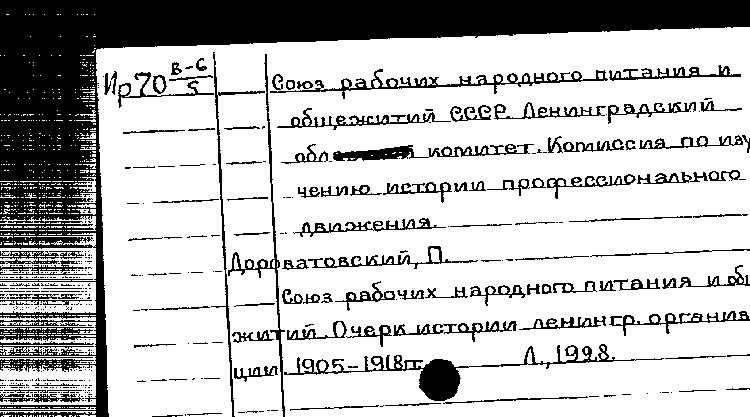 Ир70 В-6/5
Союз рабочих народного питания и
общежитий СССР. Ленинградский
обл комитет. Комиссия по изу
чению истории профессионального
движения.
Дороватовский, П.
Союз рабочих народного питания и об
житий. Очерк истории ленингр. организа
ции 1905-1918гг. Л., 1928.